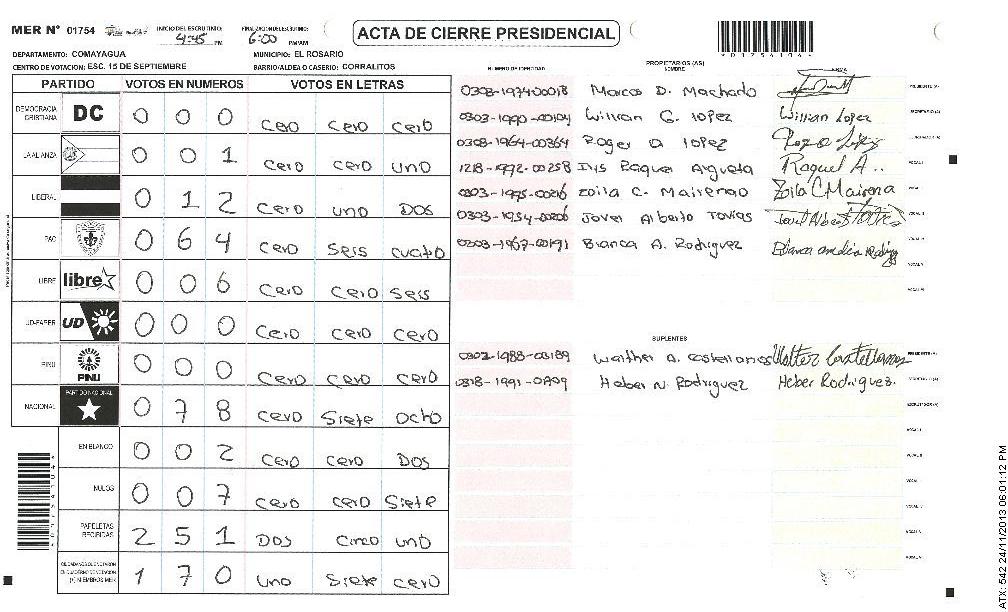 MER Nº 01754 INICIO DEL ESCRUTINIO: 4:45 PM FINALIZACION ESCRUTINIO: 6:00 PM/AM ACTA DE CIERRE PRESIDENCIAL
DEPARTAMENTO: COMAYAGUA MUNICIPIO: EL ROSARIO
CENTRO DE VOTACION: ESC. 15 DE SEPTIEMBRE BARRIO/ALDEA O CASERIO: CORRALITOS
PARTIDO VOTOS EN NUMEROS VOTOS EN LETRAS
DEMOCRACIA CRISTIANA DC 0 0 0 cero cero cero
LA ALIANZA 0 0 1 cero cero uno
LIBERAL 0 1 2 cero uno Dos
PAC 0 6 4 cero seis cuatro
LIBRE libre 0 0 6 cero cero seis
UD-FAPER UD 0 0 0 cero cero cero
PINU PINU 0 0 0 cero cero cero
NACIONAL PARTIDO NACIONAL 0 7 8 cero siete ocho
EN BLANCO 0 0 2 cero cero Dos
NULOS 0 0 7 cero cero siete
PAPELETAS RECIBIDAS 2 5 1 Dos cinco uno
1 7 0 uno siete cero
NUMERO DE IDENTIDAD PROPIETARIOS (AS) NOMBRE FIRMA
Marco D. Machado PRESIDENTE (A)
0303-1990-00104 Willian G. lopez Willian Lopez SECRETARIO (A)
0308-1964-00364 Roger D lopez
1218-1992-00258 Raquel Argueta Raquel A..
0303-1995-00216 Zoila C. Mairena Zoila C Mairena
Alberto Tovias
Blanca A. Rodriguez
SUPLENTES
Walther A. Castellanos Walter Castellanos PRESIDENTE (A)
Heber N. Rodriguez Heber Rodriguez. SECRETARIO (A)
ATX: 542 24/11/2013 06:01:12 PM